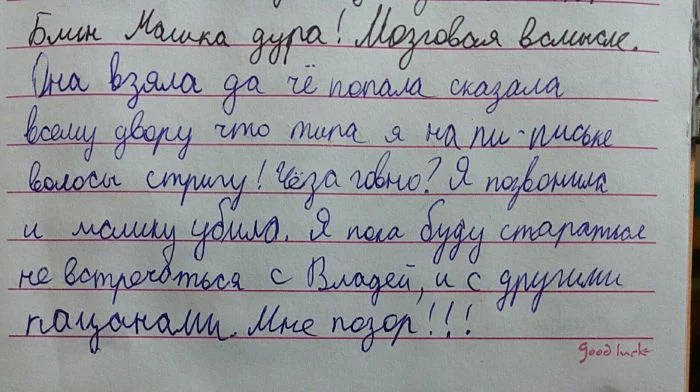 Блин Машка дура! Мозговая всмысле.
Она взяла да чё попала сказала
всему двору что типа я на пи-письке
волосы стригу! Чёза говно? Я позвонила
и машку убила. Я пока буду стараться
не встречаться с Владей, и с другими
пацанами. Мне позор!!!
Good luck